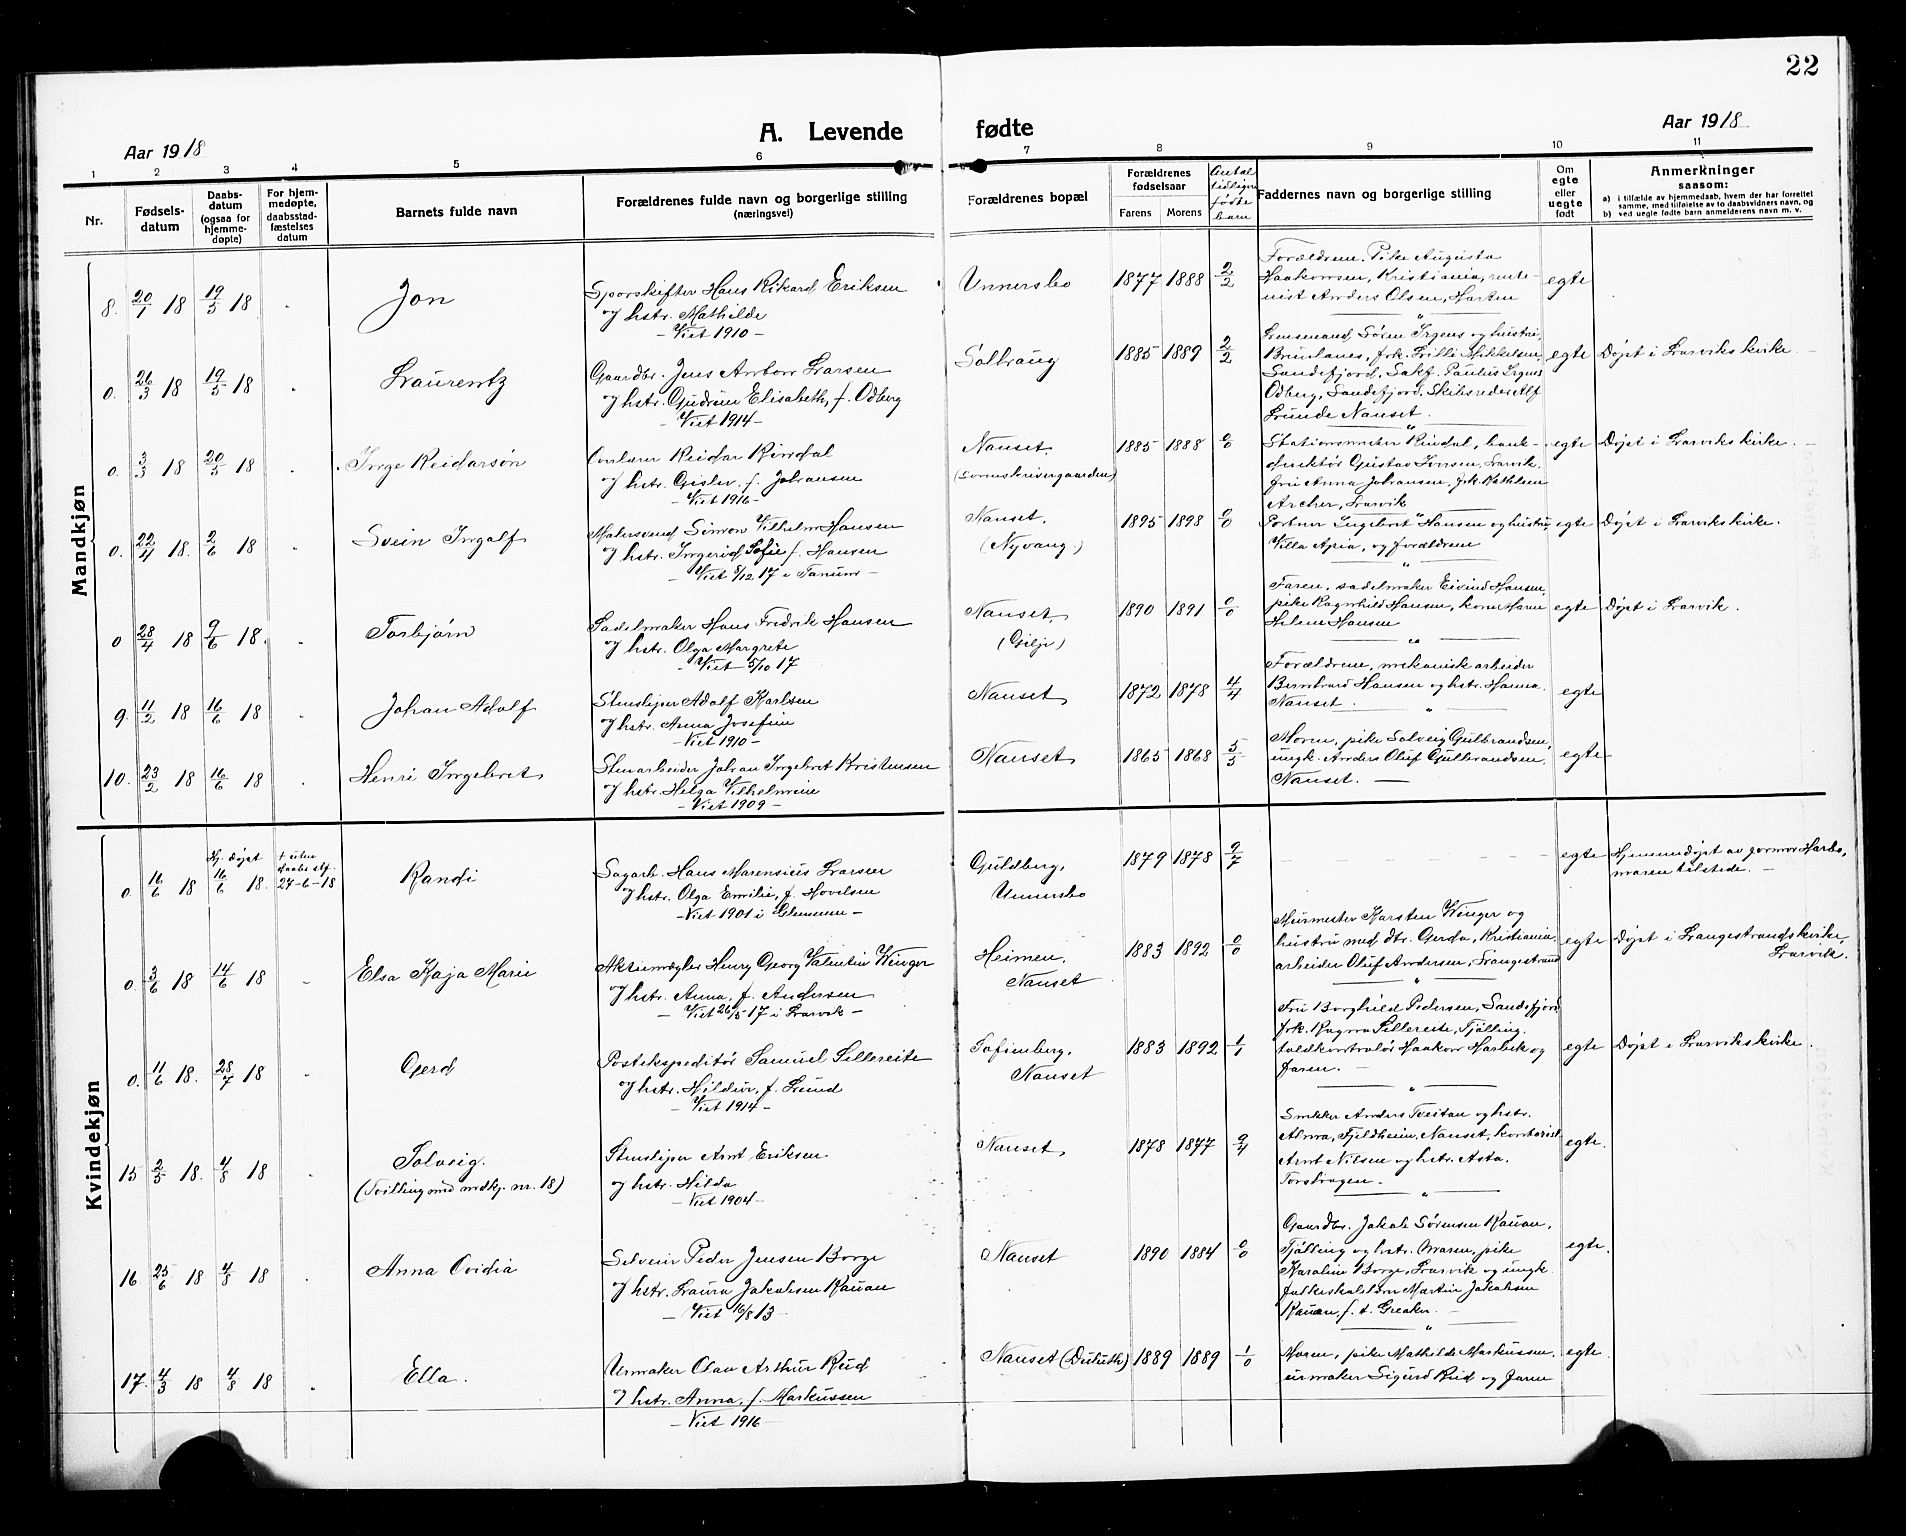 22
A. Levende fødte
Aar 1918
Aar 1918
1 2 3 4 5 6 7 8 9 10 11
Nr.
Fødsels-datum
Daabs-datum (ogsaa for hjemme-døpte)
For hjem-medøpte, daabsstad-fæstelses datum
Barnets fulde navn
Forældrenes fulde navn og borgerlige stilling (næringsvei)
Forældrenes bopæl
Forældrenes fødselsaar
Farens Morens
Antal tidligere fødte barn
Faddernes navn og borgerlige stilling
Om egte eller uegte født
Anmerkninger saasom:
a) i tilfælde av hjemmedaab, hvem der har forrettet samme, med tilføielse av to daabsvidners navn, og
b) ved uegte fødte barn anmelderens navn m. v.
Mandkjøn
8. 20/1 18 19/5 18 Jon
Sporskifter Hans Rikard Eriksen
og hstr. Mathilde
- Viet 1910 -
Unnersbo 1877 1888 2/2
Forældrene. Pike Augusta
Haakonsen, Kristiania, rente-
nist Anders Olsen, Horten
egte
0. 26/3 18 19/5 18 Laurentz
Gaardbr. Jens Anton Larsen
og hstr. Gudrun Elisabeth, f. Odberg
- Viet 1914 -
Solbraug 1885 1889 2/2
Lensmand Søren Irgens og hustru,
Brunlanes, frk. Lilli Mikkelsen,
Sandefjord, Sakf. Paulus Irgens
Odberg, Sandefjord. Skibsreder Alf
Lunde Nanset.
egte Døpt i Larviks kirke. -
0. 3/3 18 20/5 18 Inge Reidarsøn
Reidar Rindal
og hstr. Gislev. f. Johansen
- Viet 1916 -
Nanset. (Sorenskrivergaarden) 1885 1888 0/0
Stationsmester Rindal, bank-
direktør Gustav Jonsen, Larvik.
fru Anna Johansen, frk. Kathleen
Archer, Larvik
egte Døpt i Larviks kirke. -
0. 22/4 18. 2/6 18 Svein Ingolf
Malersvend Simon Vilhelm Hansen
og hstr. Ingerid Sofie f. Hansen
- Viet 8/12 17 i Tanum -
Nanset. (Nyvang.) 1895 1898 0/0
Portner Ingebret Hansen og hustru,
Villa Apia, og forældrene
egte Døpt i Larviks kirke.
0 28/4 18 9/6 18. Torbjørn
Sadelmaker Hans Fredrik Hansen
og hstr. Olga Margrete
- Viet 5/10 17
Nanset. (Gilje) 1890 1891 0/0
Faren, sadelmaker Eivind Hansen,
pike Ragnhild Hansen, kone Maren
Helene Hansen
egte Døpt i Larvik.
9. 11/2 18 16/6 18 Johan Adolf
Stensliper Adolf Karlsen
og hstr. Anna Josefine
- Viet 1910 -
Nanset 1872 1878 4/4
Forældrene, mekanisk arbeider
Bernhard Hansen og hstr. Hanna.
Nanset.
egte
10. 23/2 18 16/6 18 Henri Ingebret
Stenarbeider Johan Ingebret Kristensen
og hstr. Helga Vilhelmine
- Viet 1909 -
Nanset 1865 1868 5/5
Moren, pike Solveig Gulbrandsen,
ungk. Anders Oluf Gulbrandsen,
Nanset. -
egte
Kvindekjøn
0. 16/6 18 Hj. døpt 16/6 18. + uten daabs stf. 24-6-18 Randi
Sagarb. Hans Marensius Larsen
og hstr. Olga Emilie, f. Hovelsen
- Viet 1901 i Glemmen -
Guldberg, Unnersbo 1879 1878 9/7
egte Hjemmedøpt av jormor Harbo,
moren tilstede. -
0. 3/6 18 14/6 18 Elsa Kaja Marie
Aktiemægler Henry Georg Valentin Winger
og hstr. Anna, f. Andersen
- Viet 26/5 17 i Larvik -
Heimen, Nanset 1883 1892 0/0
Murmester Karsten Winger og
hustru med dtr. Gerda, Kristiania
arbeider Oluf Andersen, Langestrand
egte Døpt i Langestrands kirke,
Larvik.
0. 11/6 18. 28/7 18 Gerd
Postekspeditør Samuel Sellereite
og hstr. Hildur, f. Lund
- Viet 1914 -
Sofienberg, Nanset 1883 1892 1/1
Fru Borghild Pedersen, Sandefjord
frk. Ragna Sellereite, Tjølling.
toldkontrolør Haakon Harbek og
faren. -
egte Døpt i Larviks kirke.
15 2/5 18. 4/8 18 Solveig.
(Tvilling med mdkj. nr. 18)
Stensliper Arnt Eriksen
og hstr. Hilda
- Viet 1904 -
Nanset, 1878 1877 9/4
Snekker Anders Tveitan og hstr.
Alma, Fjeldheim, Nanset, kontorist
Arnt Nilsen og hstr. Asta,
Torstvogen. -
egte.
16 25/6 18 4/8 18 Anna Ovidia
Selveier Peder Jensen Borge
og hstr. Laura Jakobsen Rauan
- Viet 16/8 13 -
Nanset 1890 1884 0/0
Gaardbr. Jakob Sørensen Rauan,
Tjølling og hstr. Maren, pike
Karoline Borge, Larvik og ungk.
folkeskolelærer Martin Jakobsen
Rauan, f. t. Greaker. -
egte.
17. 4/3 18 4/8 18 Ella.
Urmaker Olav Arthur Rud
og hstr. Anna, f. Markussen
- Viet 1916 -
Nanset (Duluth) 1889 1889 1/0
Moren, pike Mathilde Markussen,
urmaker Sigurd Rud og faren
egte.